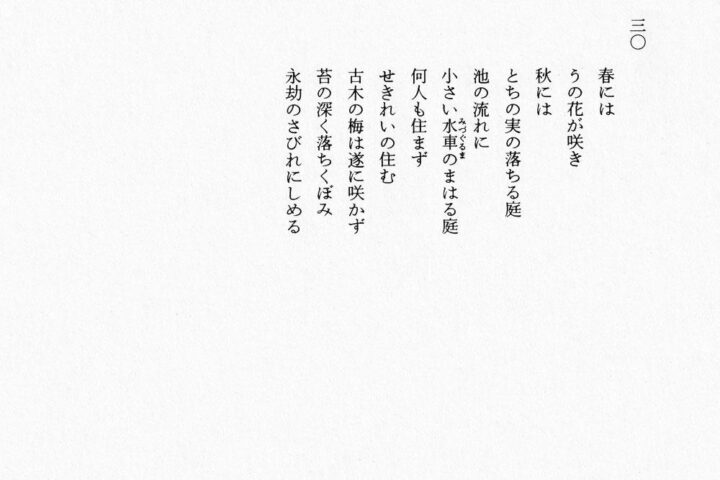 三〇
春には
うの花が咲き
秋には
とちの実の落ちる庭
池の流れに
小さい水車のまはる庭
みづぐるま
何人も住まず
せきれいの住む
古木の梅は遂に咲かず
苔の深く落ちくぼみ
永劫のさびれにしめる